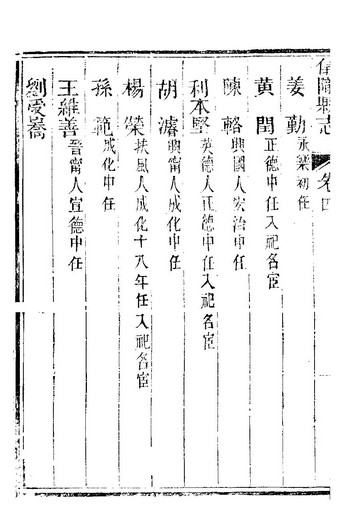 信陽縣志 卷四
姜勤永樂初任
黄閏正德中任入祀名宦
陳輅興國人宏治中任
利本堅英德人正德中任入祀名宦
胡濬興甯人成化中任
楊榮扶風人成化十八年任入祀名宦
孫範成化中任
王維善晉甯人宣德中任
劉受嵩